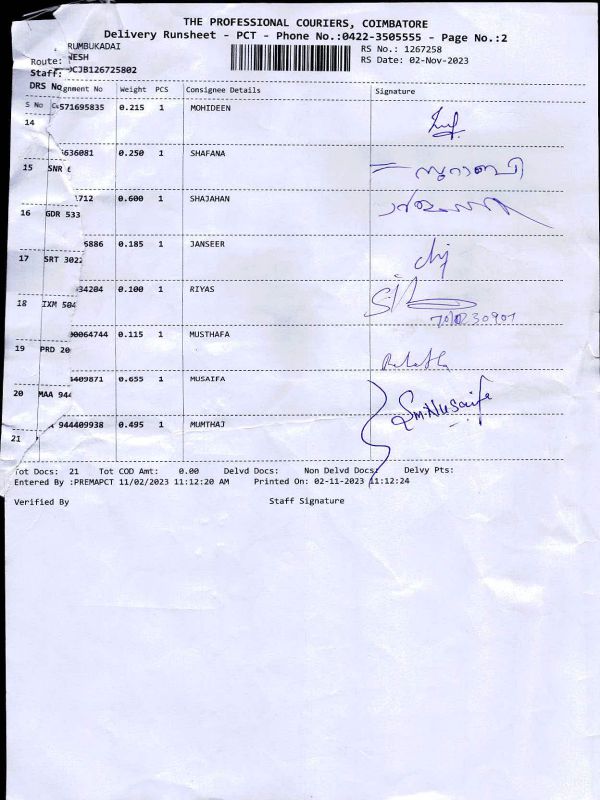 THE PROFESSIONAL COURIERS, COIMBATORE
Delivery Runsheet - PCT - Phone No.:0422-3505555 - Page No.:2
Route: RUMBUKADAI
RS No.: 1267258
Staff: NESH
RS Date: 02-Nov-2023
DRS No CJB126725802
S No gnment No Weight PCS Consignee Details Signature
14 571695835 0.215 1 MOHIDEEN
15 SNR 636081 0.250 1 SHAFANA
സുറാബി
16 GDR 533 712 0.600 1 SHAJAHAN
17 SRT 3022 6886 0.185 1 JANSEER
18 IXM 504 34204 0.100 1 RIYAS
19 PRD 20 0064744 0.115 1 MUSTHAFA
20 MAA 944 409871 0.655 1 MUSAIFA
Sm.Musaifa
21 944409938 0.495 1 MUMTHAJ
Tot Docs: 21 Tot COD Amt: 0.00 Delvd Docs: Non Delvd Docs: Delvy Pts:
Entered By :PREMAPCT 11/02/2023 11:12:20 AM Printed On: 02-11-2023 11:12:24
Verified By Staff Signature